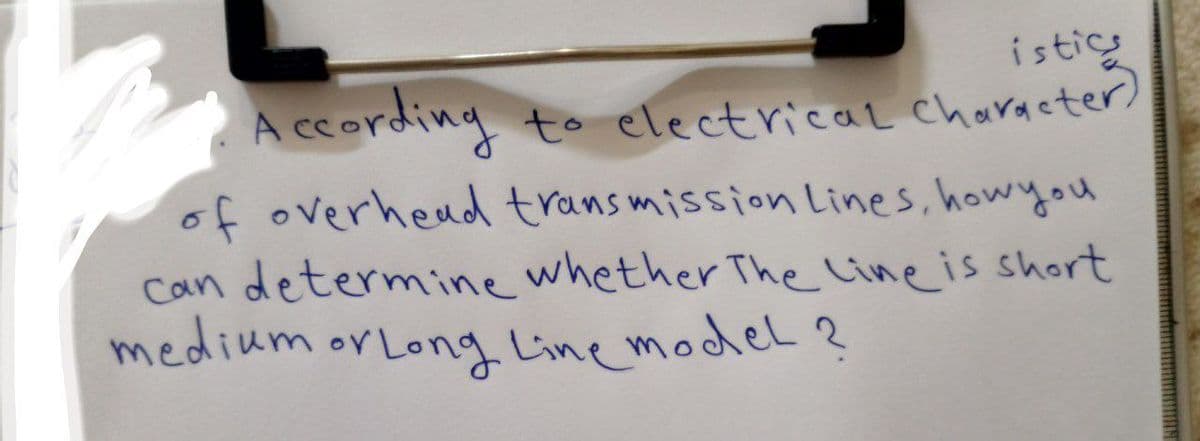 According to electrical characteristics
of overhead transmission Lines, how you
can determine whether The line is short
medium or Long Line model ?